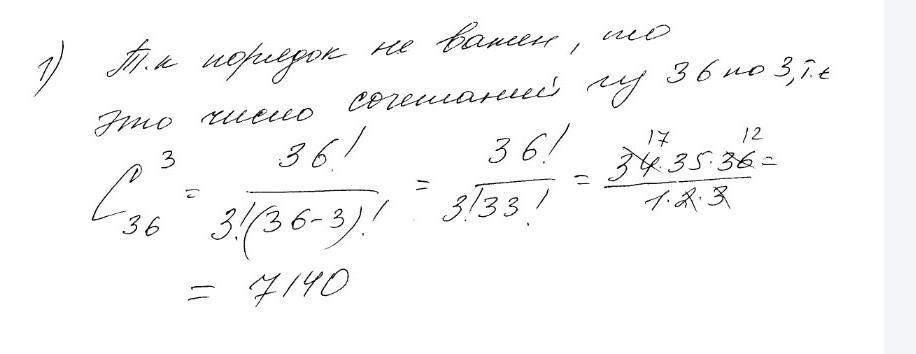 1) Т.к порядок не важен, то
это число сочетаний из 36 по 3, т.е
C₃₆³ = 36!/(3!(36-3)!) = 36!/(3!33!) = (34·35·36)/(1·2·3) = 17 12
= 7140